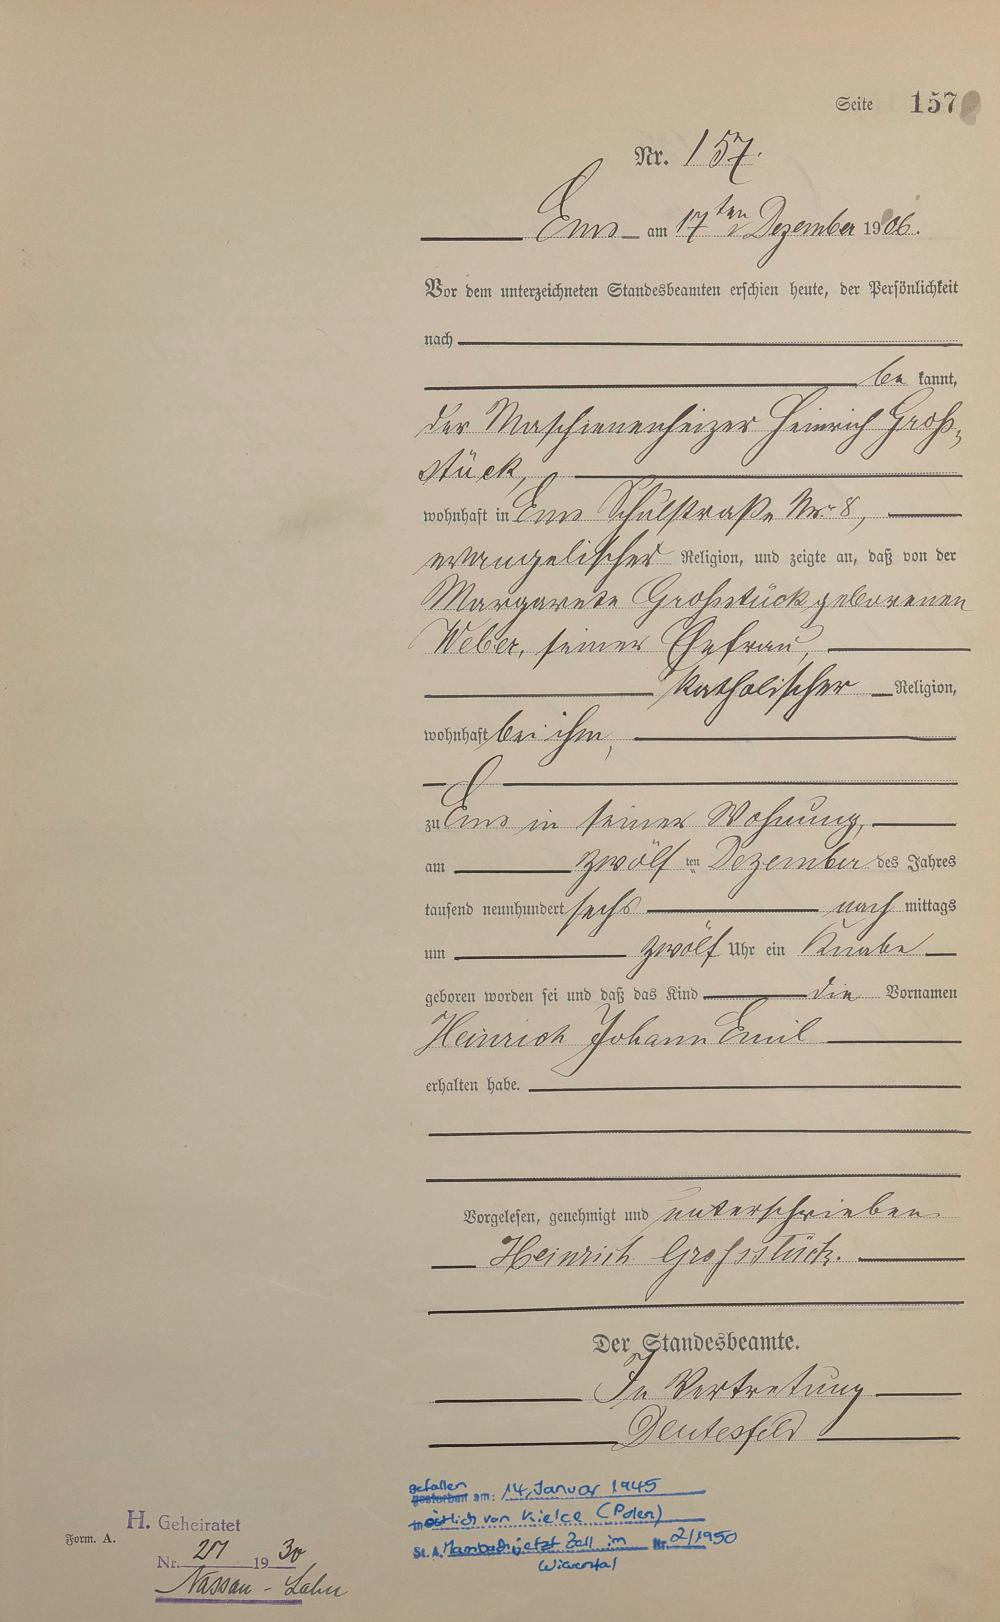 Seite 157
Nr. 157.
Ems am 17ten Dezember 1906.
Vor dem unterzeichneten Standesbeamten erschien heute, der Persönlichkeit
nach
be kannt,
der Maschienenheizer Heinrich Groß-
stück,
wohnhaft in Ems Schulstraße Nr. 8,
evangelischer Religion, und zeigte an, daß von der
Margarete Grossstück geborenen
Weber, seiner Ehefrau,
katholischer Religion,
wohnhaft bei ihm,
zu Ems in seiner Wohnung,
am zwölf ten Dezember des Jahres
tausend neunhundert sechs nach mittags
um zwölf Uhr ein Knabe
geboren worden sei und daß das Kind die Vornamen
Heinrich Johann Emil
erhalten habe.
Vorgelesen, genehmigt und unterschrieben
Heinrich Grossstück.
Der Standesbeamte.
In Vertretung
gefallen
gestorben am: 14. Januar 1945
östlich von Kielce (Polen)
St. A. jetzt Zell im Nr. 2/1950
Wiesental
Form. A.
H. Geheiratet
Nr. 19 30
Nassau - Lahn